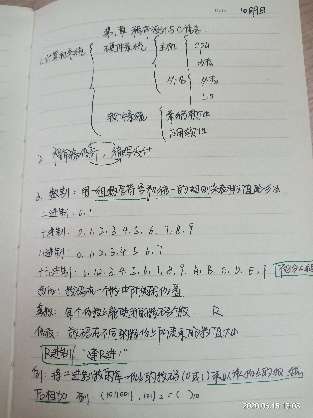 10月9日
第一章 程序设计与C语言
1. 计算机系统 硬件系统 主机 CPU
内存
外设 外存
I/O
软件系统 系统软件
应用软件
2.
3. 数制：用一组数字符号和统一的规则来表示数值的方法
二进制：0、1
十进制：0、1、2、3、4、5、6、7、8、9
八进制：0、1、2、3、4、5、6、7
十六进制：0、1、2、3、4、5、6、7、8、9、A、B、C、D、E、F
数位：数码在一个数中所处的位置
基数：每个数位上能使用的数码个数 R
位权：数码在不同的数位上所代表的数值大小
R进制："逢R进1"
例：将二进制数的每一位上的数码(0或1)乘以相应位的权
再相加 例 (101001.101)₂ = ( )₁₀
2020/06/15